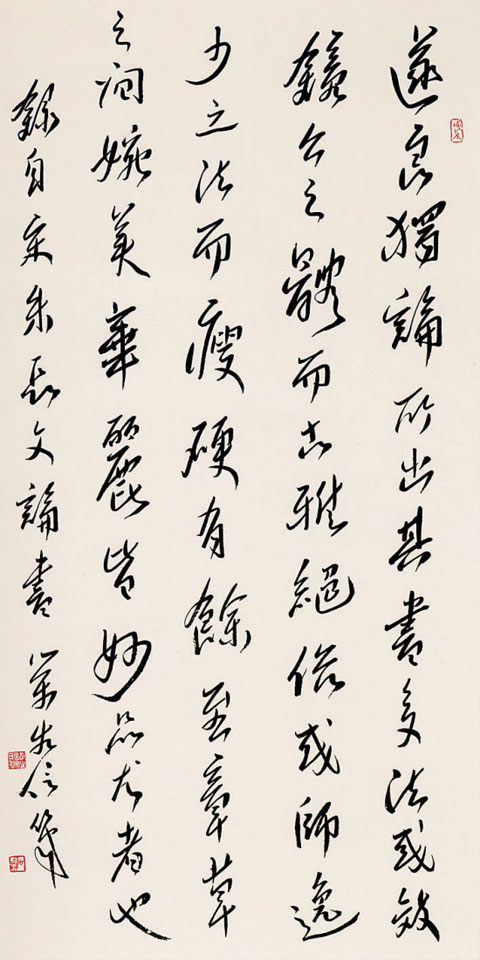 遂良獨論所出其書多法或效
鍾公之體而古雅絕俗或師逸
少之法而瘦硬有餘至章草
之間婉美華麗皆妙品尤者也
錄自宋朱長文論書